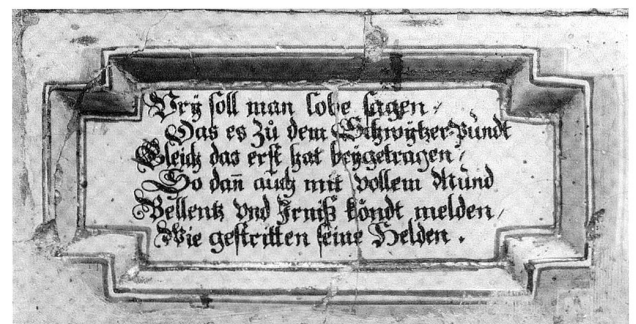 Vrÿ soll man lobe sagen /
Das es Zů dem Schwÿtzer=pündt
Gleich das erst hat beÿgetragen /
So dañ auch mit vollem Mund
Bellentz vnd Jrniß köndt melden /
Wie gestritten seine Helden .